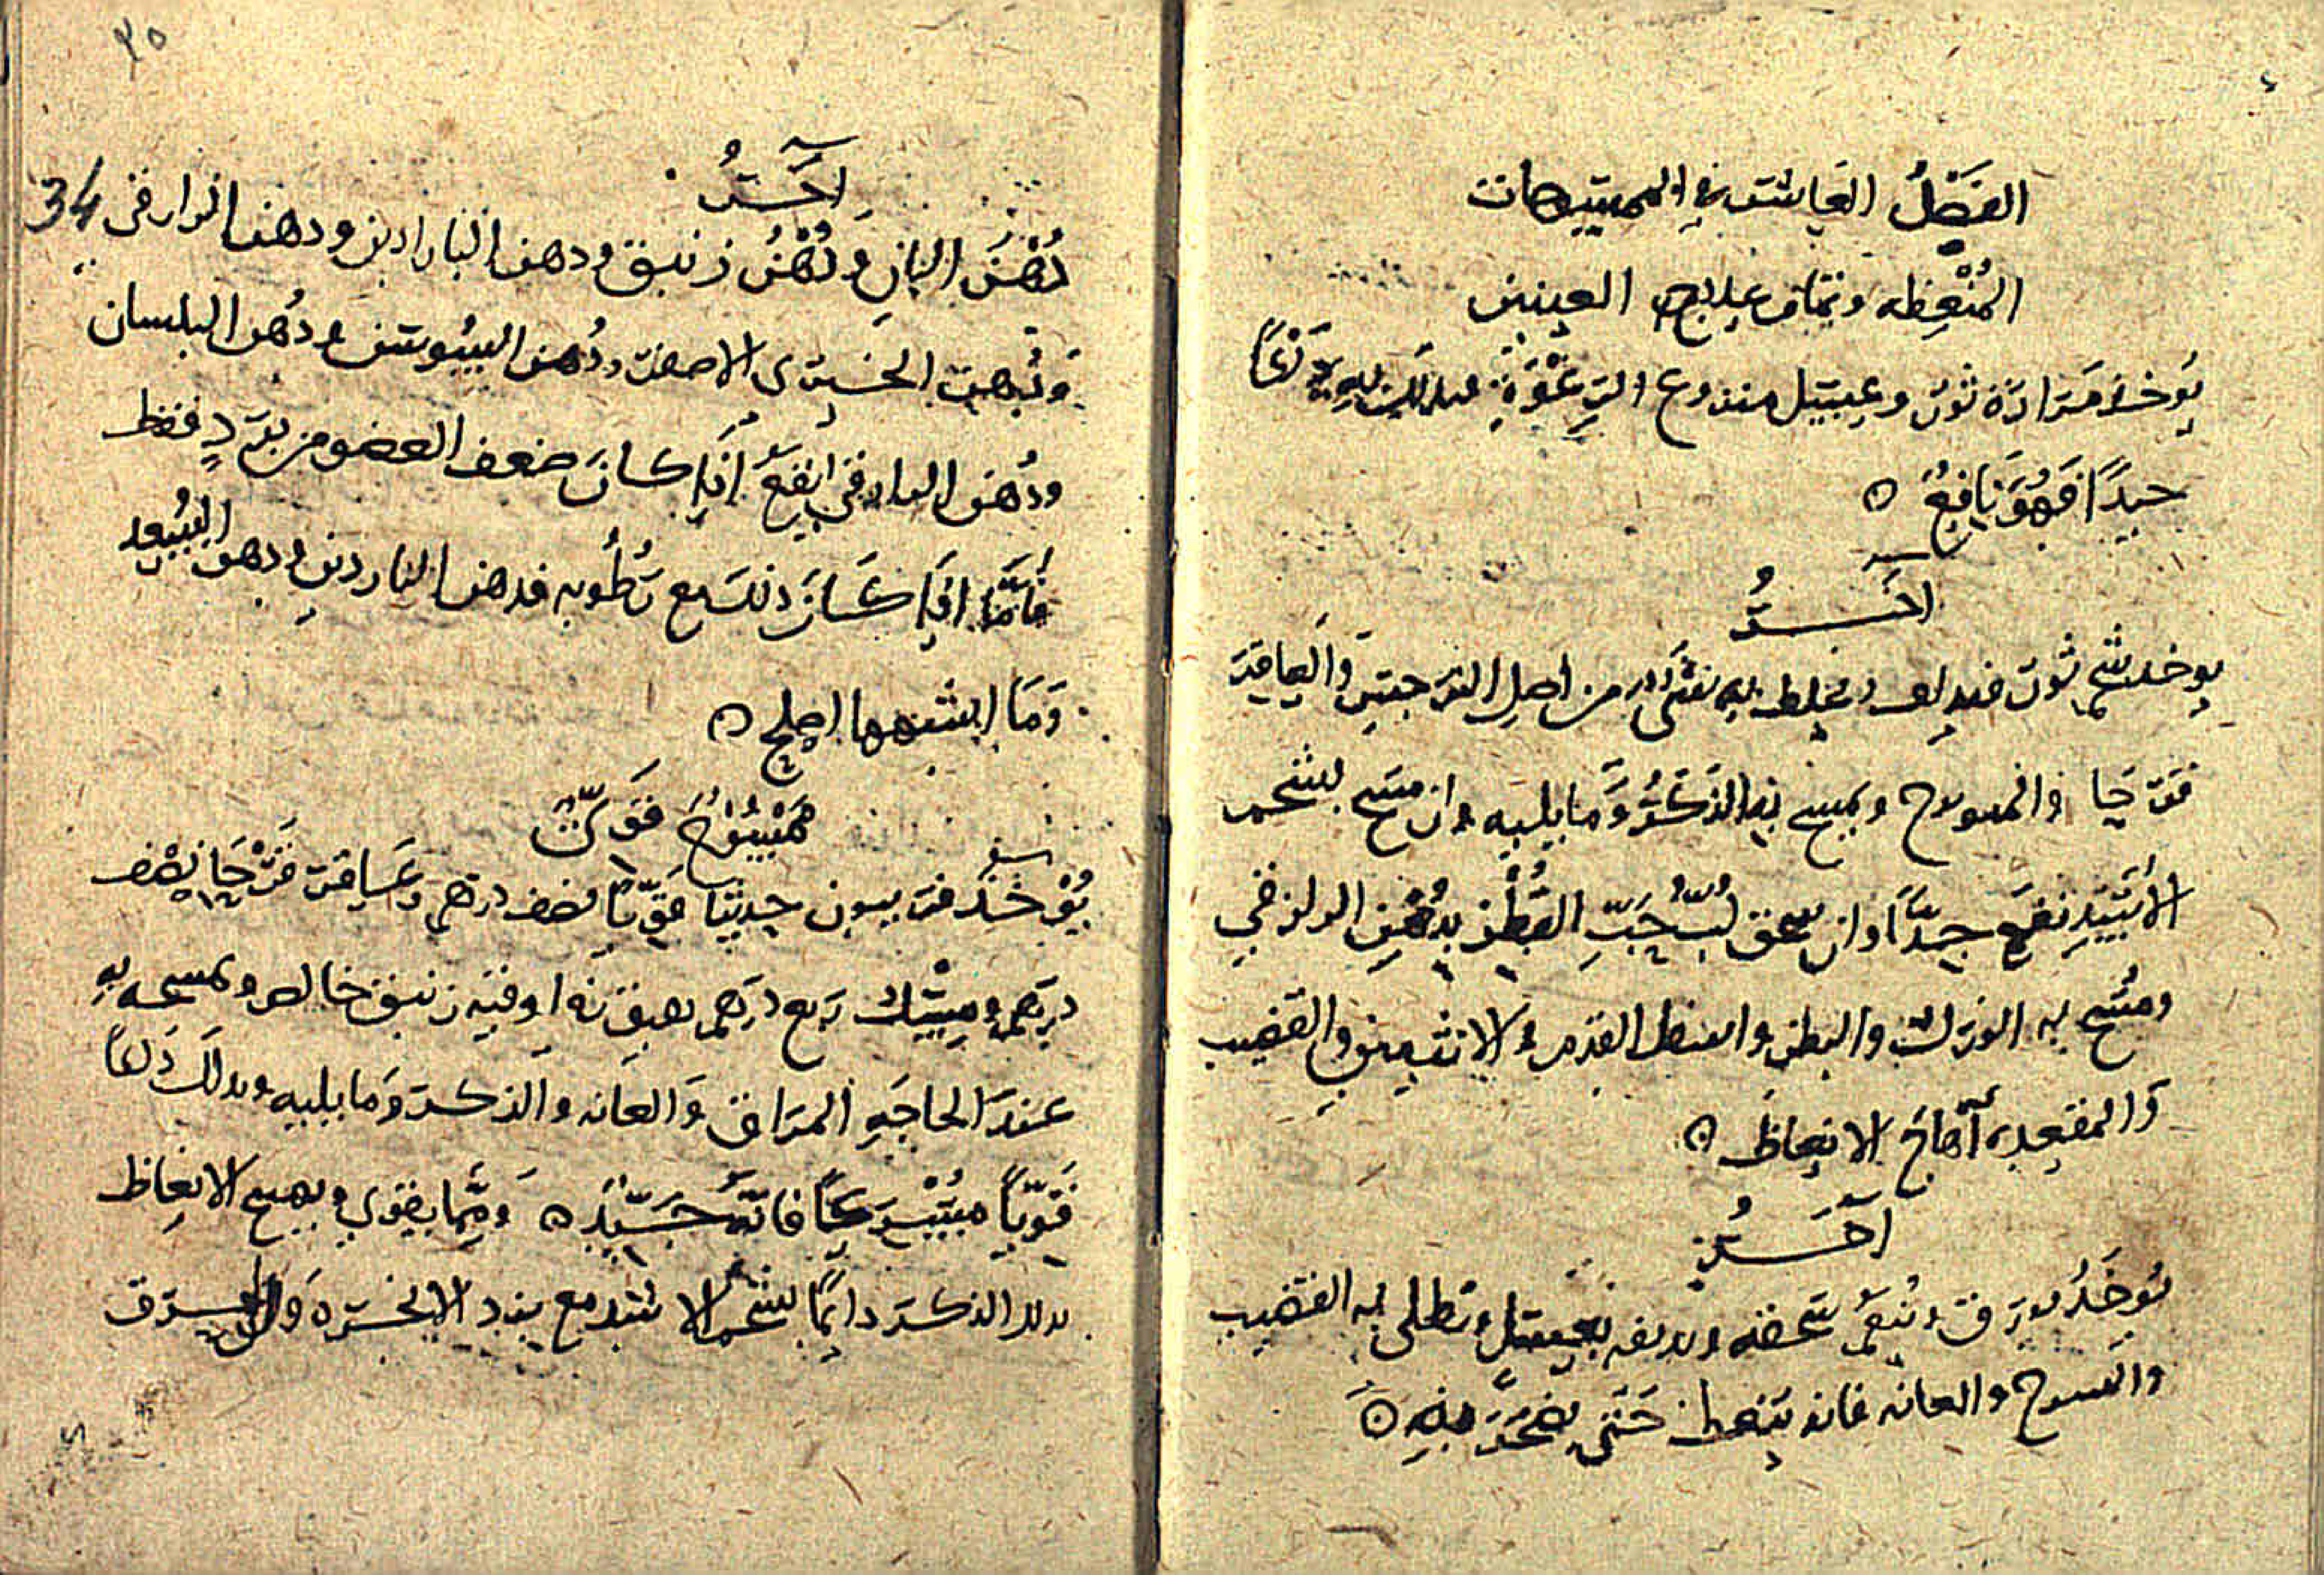 الفَصْلُ العَاشر في الممسوحات
المُنْعِظه وتمام علاج العينين
يُوخذ مَرَارَة ثور وعسل منزوع الرغْوَةِ يدلك به دَلْكًا
جيدًا فهُوَ نَافِعُ ۞
اخــرُ
يوخد شحم ثور فيداف ويخلط به شى من اصلِ النرجس والعاقر
قرحا والميويزج ويمسح به الذكرُ وَمَا يليه وان مسح بشحم
الأسَدِ نفع جيدًا وان سحق لُبُّ حَبِّ القُطْن بدُهْنِ الرازقي
ومُسح به الوَرك والبطن واسفل القدم والانثيين والقضيب
وَالمقعده أهاج الانعاظ ۞
آخَــرُ
يُوخَذُ بورق ويُنعم سَحقه ويداف بعسل ويطلى به القضيب
والعانه فانه ينعط حَتى يضجر منه ۞
٣٥
34
آخــرُ
دُهْن البانِ وَدُهْنُ زنبق ودهن النارادين ودهن الرازقى
وَدُهن الخيرى الاصفر ودُهن السُوسن ودُهن البلسان
ودُهن الرازقى انفعُ اذا كانَ ضعف العضو من بَرد فقط
فأمَّا اذَا كَانَ ذلك مع رُطُوبه فدهن الناردين ودهن
وَمَا اشبهها اصلح ۞
مَمْسُوحُ قَوىٌّ
يُؤْخَذ فربيون حديثا قويًّا نصف درهم وعَاقر قرْحَا نصْف
درهم ومِسك ربع درهم اوقيه زنبق خالص ويمسح به
عندَ الحاجَهِ المرَاق وَالعانه والذكر وَمَا يليه ويدلك دَلكًا
قوِيًّا فانَّهُ جَيّد ۞ وَممَّا يقوي ويهيج الانعاظ
دلك الذكر دايمًا بشحم الاسد مع بزر الانجره وَ